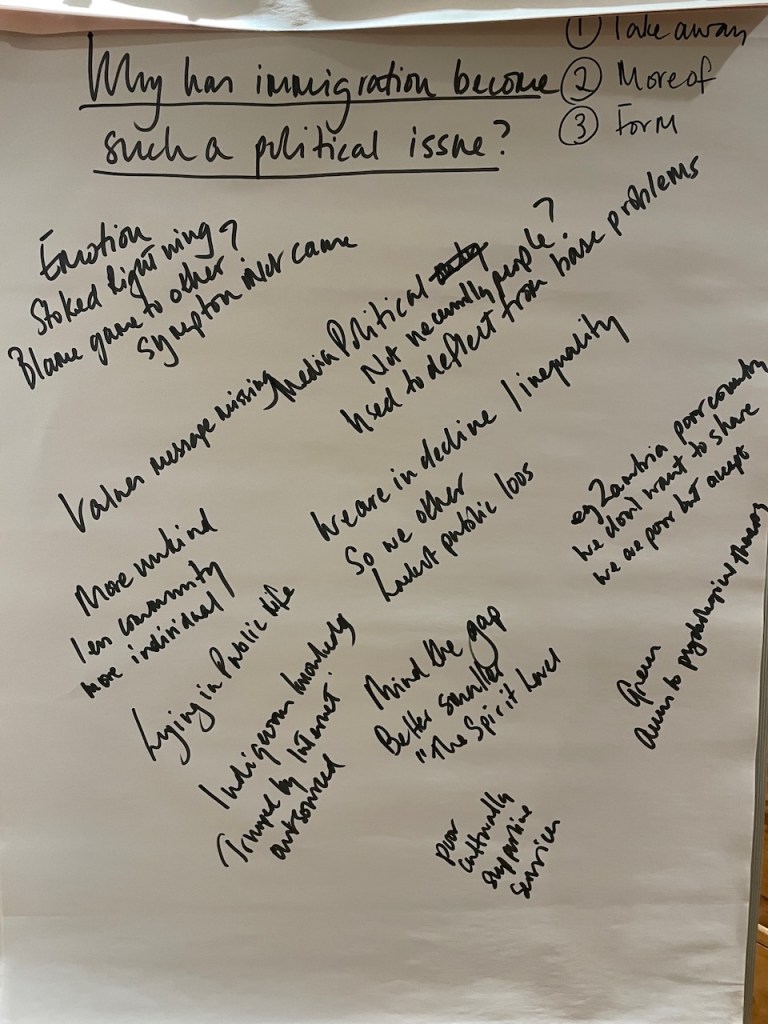 Why has immigration become
such a political issue?
① Take away
② More of
③ Form
Emotion
Stoked Right wing?
Blame game to other
symptom not cause
Media Political
Not necessarily people?
Used to deflect from base problems
Values message missing
We are in decline / inequality
So we other
Lowest public loos
eg Zambia poor country
we don't want to share
we are poor but accept
More unkind
less community
more individual
Lying in Public life
Indigenous knowledge
Trumped by Internet
outsourced
Mind the gap
Better smaller
"The Spirit Level
Green
Access to psychological theory
Poor
culturally
supportive
services